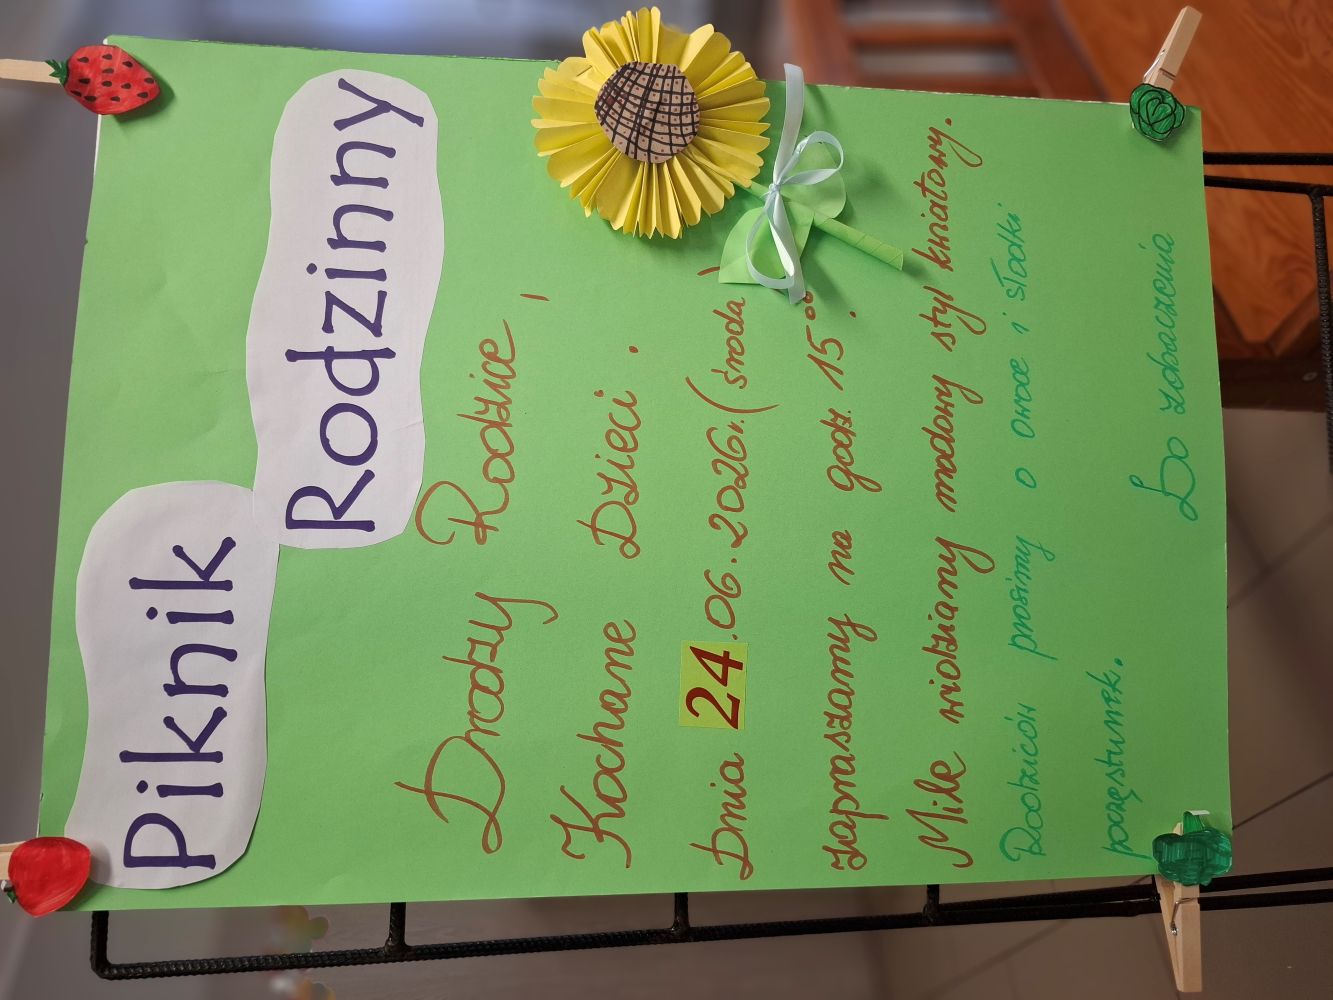 Piknik
Rodzinny
Drodzy Rodzice,
Kochane Dzieci.
Dnia 24.06.2026r. (środa)
zapraszamy na godz. 15⁰⁰.
Mile widziany modowy styl kwiatowy.
Rodziców prosimy o owoce i słodki
poczęstunek.
Do zobaczenia